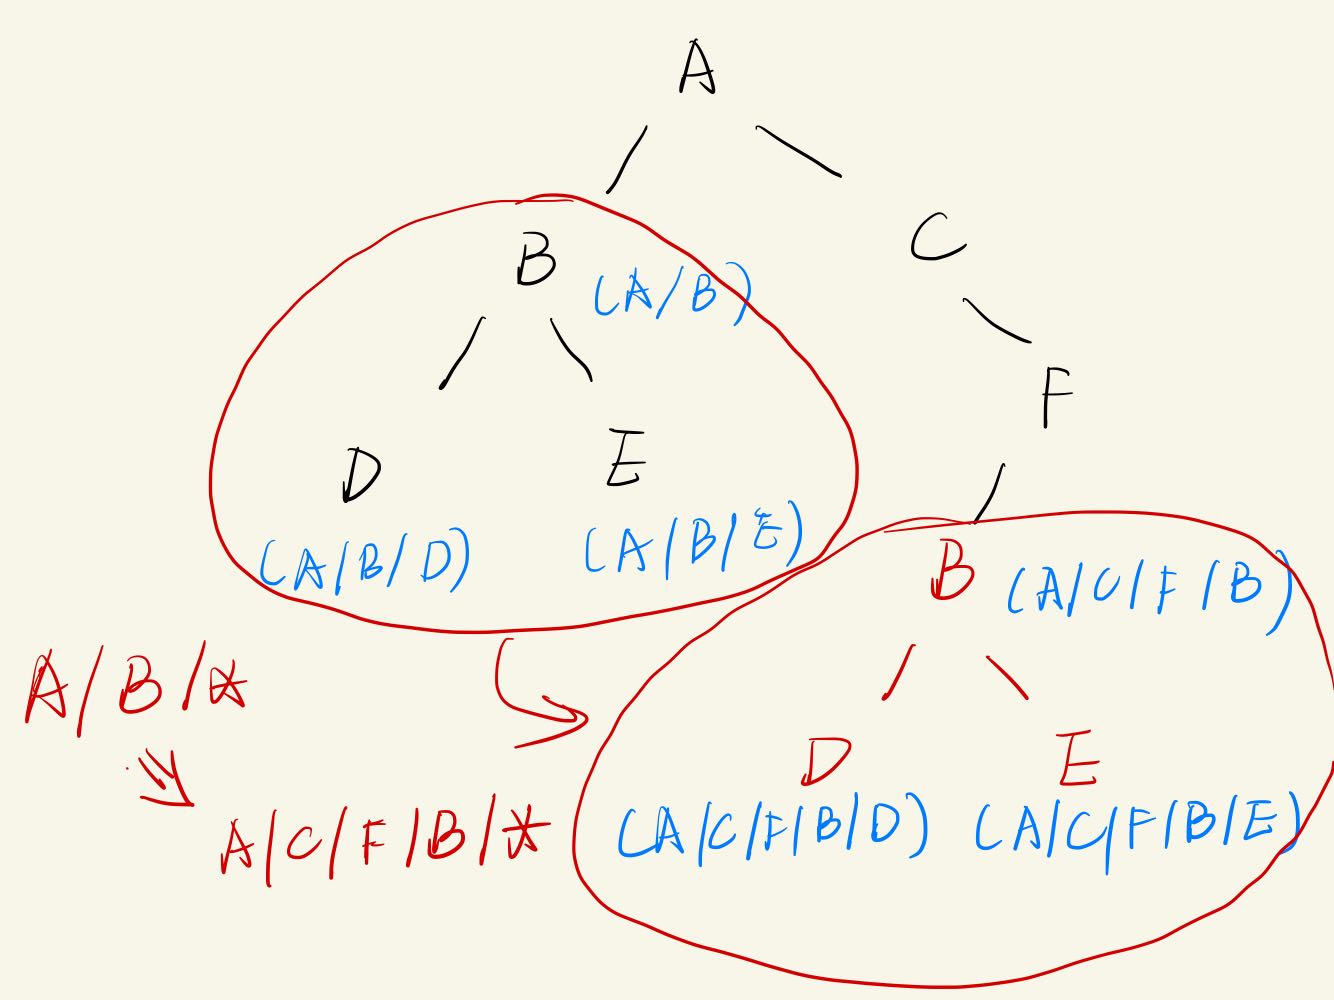 A
B
(A/B)
C
D
E
F
(A/B/D)
(A/B/E)
B
(A/C/F/B)
A/B/*
D
E
A/C/F/B/*
(A/C/F/B/D)
(A/C/F/B/E)